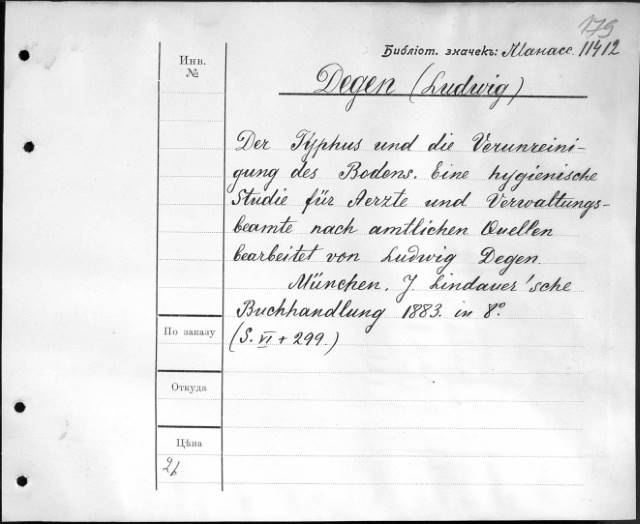 179
Библіот. значекъ: Манасс. 11412
Инв.
№
Degen (Ludwig)
Der Typhus und die Verunreini-
gung des Bodens. Eine hygienische
Studie für Aerzte und Verwaltungs-
beamte nach amtlichen Quellen
bearbeitet von Ludwig Degen.
München. J. Lindauer'sche
Buchhandlung 1883. in 8°
(S. VI + 299.)
По заказу
Откуда
Цѣна